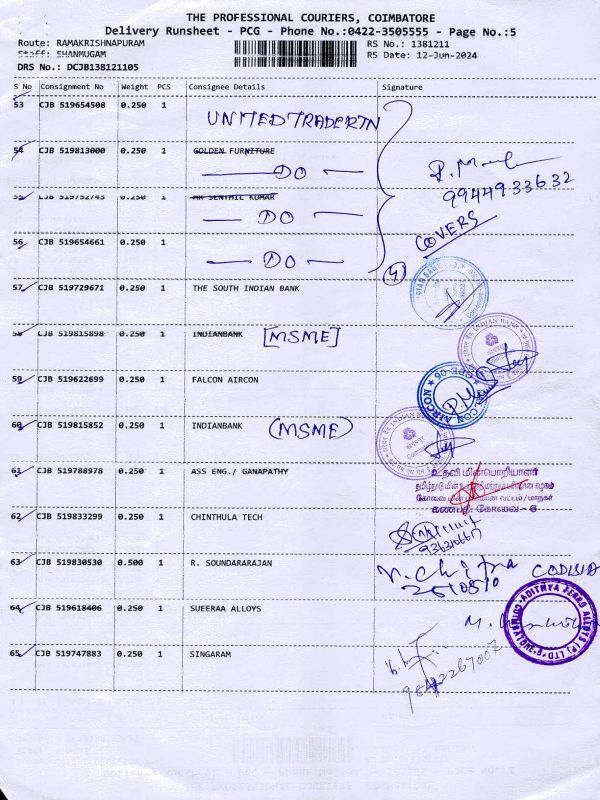 THE PROFESSIONAL COURIERS, COIMBATORE
Delivery Runsheet - PCG - Phone No.:0422-3505555 - Page No.:5
Route: RAMAKRISHNAPURAM
RS No.: 1381211
Staff: SHANMUGAM
RS Date: 12-Jun-2024
DRS No.: DCJB138121105
S No Consignment No Weight PCS Consignee Details Signature
53 CJB 519654508 0.250 1 UNITED TRADERTN
54 CJB 519813000 0.250 1 GOLDEN FURNITURE
DO
P.
9944933632
55 CJB 519752743 0.250 1 MR SENTHIL KUMAR
DO
COVERS
56 CJB 519654661 0.250 1
DO
(4)
57 CJB 519729671 0.250 1 THE SOUTH INDIAN BANK
58 CJB 519815898 0.250 1 INDIANBANK [MSME]
INDIAN BANK
59 CJB 519622699 0.250 1 FALCON AIRCON
60 CJB 519815852 0.250 1 INDIANBANK (MSME)
61 CJB 519788978 0.250 1 ASS ENG./ GANAPATHY
உதவி மின்பொறியாளர்
கணபதி. கோவை - 6
62 CJB 519833299 0.250 1 CHINTHULA TECH
63 CJB 519830530 0.500 1 R. SOUNDARARAJAN
N. Chitra
2510510
64 CJB 519618406 0.250 1 SUEERAA ALLOYS
ADITHYA FERRO ALLOYS (P) LTD
65 CJB 519747883 0.250 1 SINGARAM